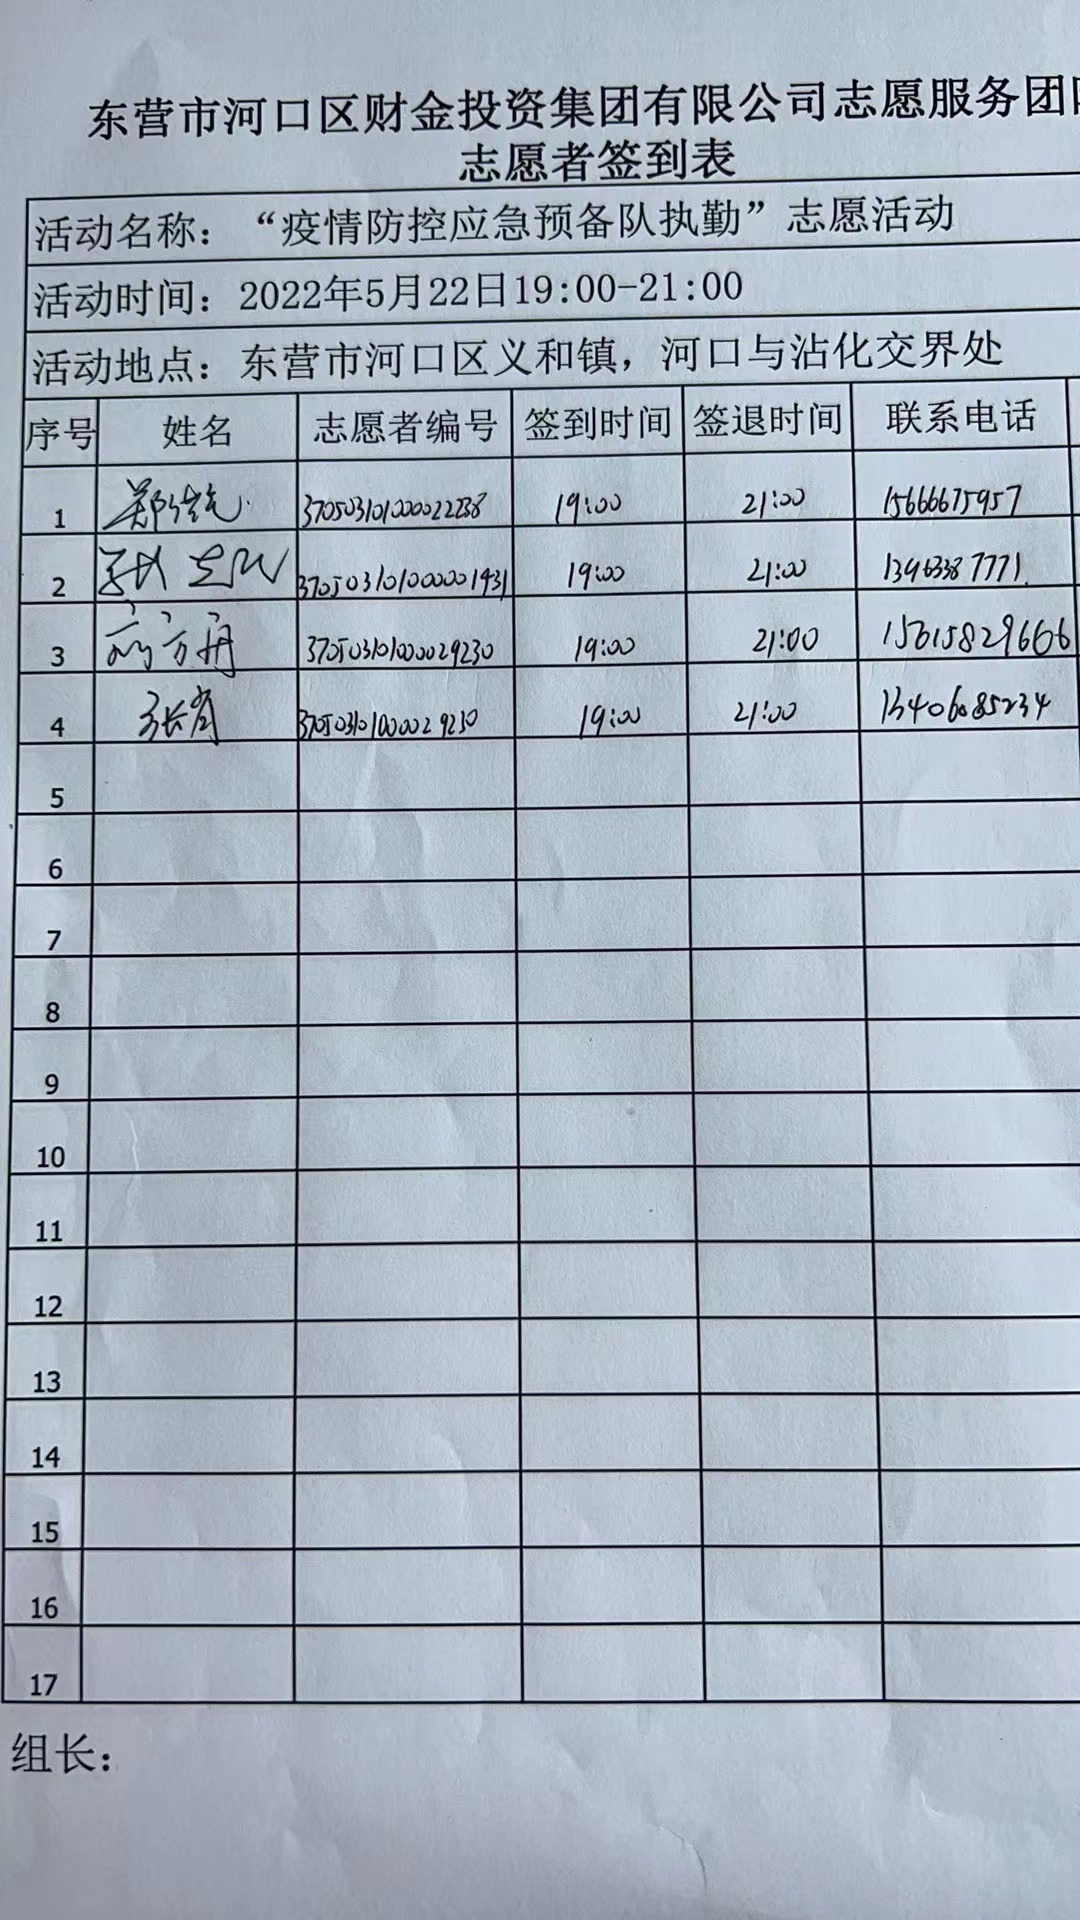 东营市河口区财金投资集团有限公司志愿服务团
志愿者签到表
活动名称：“疫情防控应急预备队执勤”志愿活动
活动时间：2022年5月22日19:00-21:00
活动地点：东营市河口区义和镇，河口与沾化交界处
序号 姓名 志愿者编号 签到时间 签退时间 联系电话
1 19:00 21:00 15666675957
2 19:00 21:00 13963387771
3 370503101000029230 19:00 21:00 15615829666
4 370503101000029230 19:00 21:00 13406085234
5
6
7
8
9
10
11
12
13
14
15
16
17
组长：